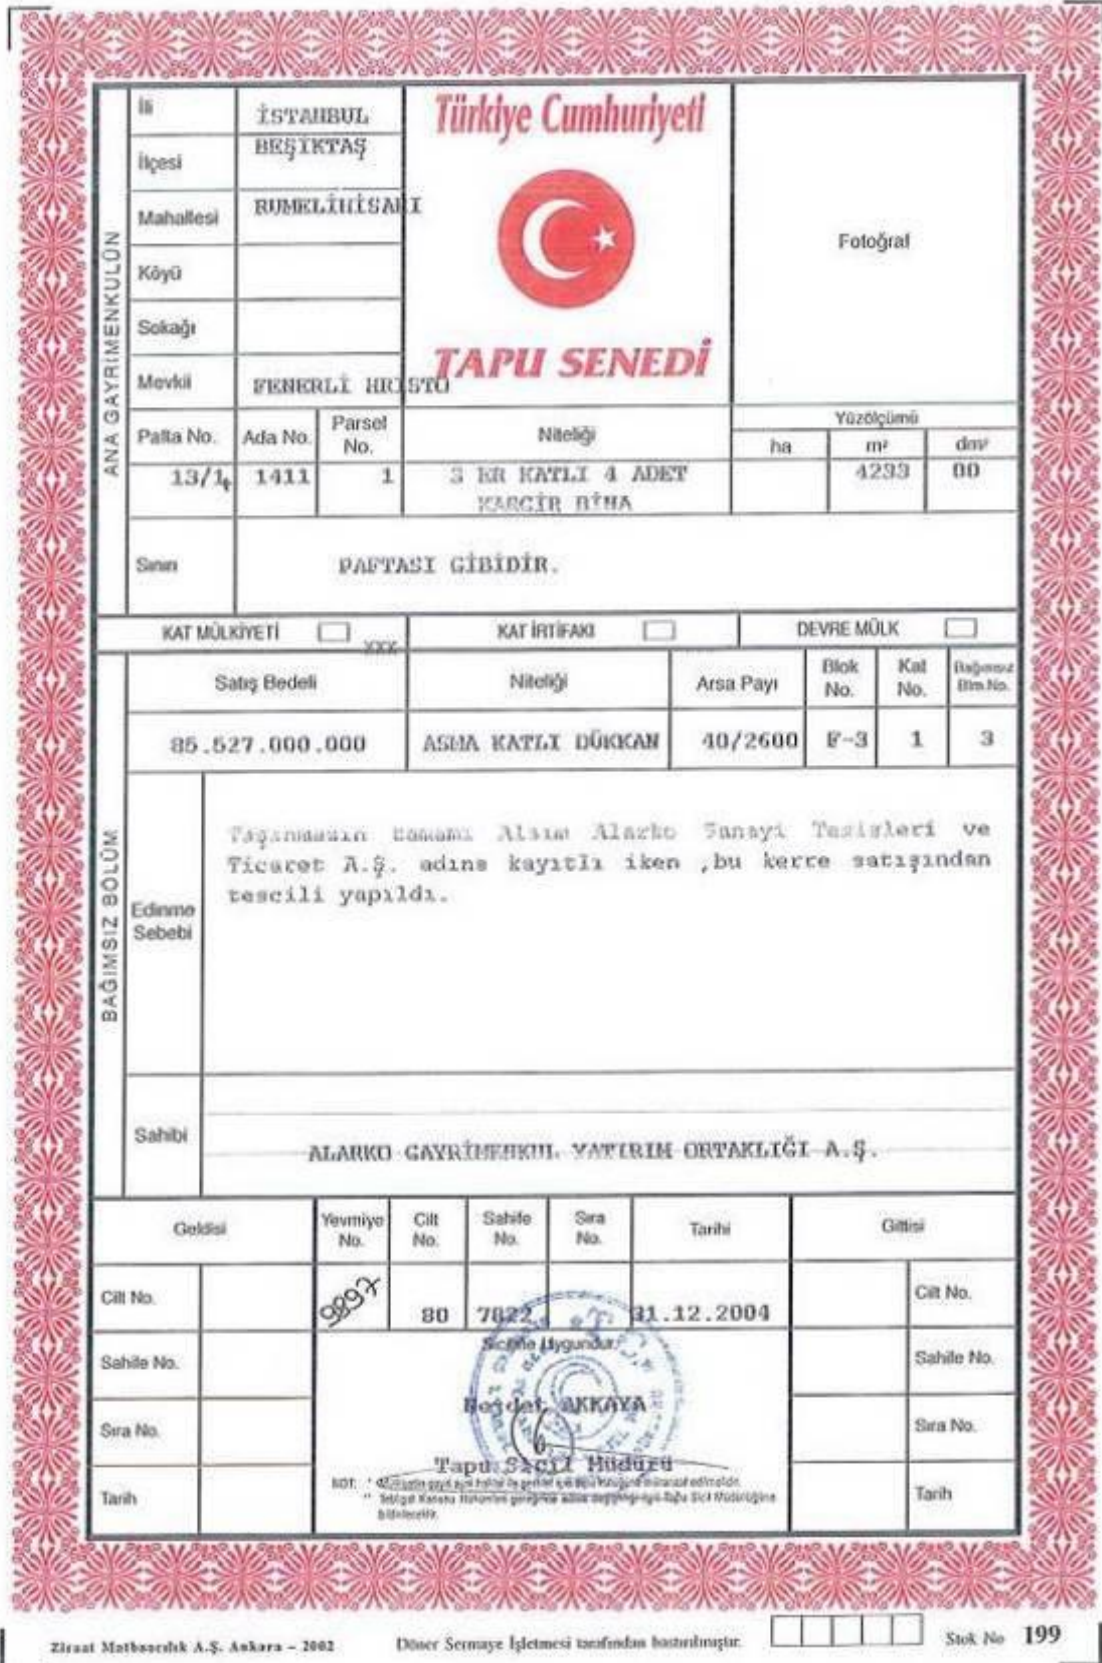 ANA GAYRİMENKULÜN
İli İSTANBUL
İlçesi BEŞİKTAŞ
Mahallesi RUMELİHİSARI
Köyü
Sokağı
Mevkii FENERLİ HRISTO
Türkiye Cumhuriyeti
TAPU SENEDİ
Fotoğraf
Pafta No. Ada No. Parsel No. Niteliği Yüzölçümü
ha m² dm²
13/1 1411 1 3 ER KATLI 4 ADET 4233 00
KARGİR BİNA
Sınırı PAFTASI GİBİDİR.
KAT MÜLKİYETİ XXX KAT İRTİFAKI DEVRE MÜLK
BAĞIMSIZ BÖLÜM
Satış Bedeli Niteliği Arsa Payı Blok No. Kat No. Bağımsız Blm.No.
85.527.000.000 ASMA KATLI DÜKKAN 40/2600 F-3 1 3
Edinme Sebebi
Taşınmazın tamamı Alsim Alarko Sanayi Tesisleri ve
Ticaret A.Ş. adına kayıtlı iken ,bu kerre satışından
tescili yapıldı.
Sahibi
ALARKO GAYRİMENKUL YATIRIM ORTAKLIĞI A.Ş.
Geldisi Yevmiye No. Cilt No. Sahife No. Sıra No. Tarihi Gittisi
Cilt No. 9897 80 7822 31.12.2004 Cilt No.
Siciline Uygundur.
Sahife No. Sahife No.
AKKAYA
Sıra No. Sıra No.
Tapu Sicil Müdürü
NOT:
Tarih Tarih
bildirilecektir.
Ziraat Matbaacılık A.Ş. Ankara – 2002 Döner Sermaye İşletmesi tarafından bastırılmıştır. Stok No 199